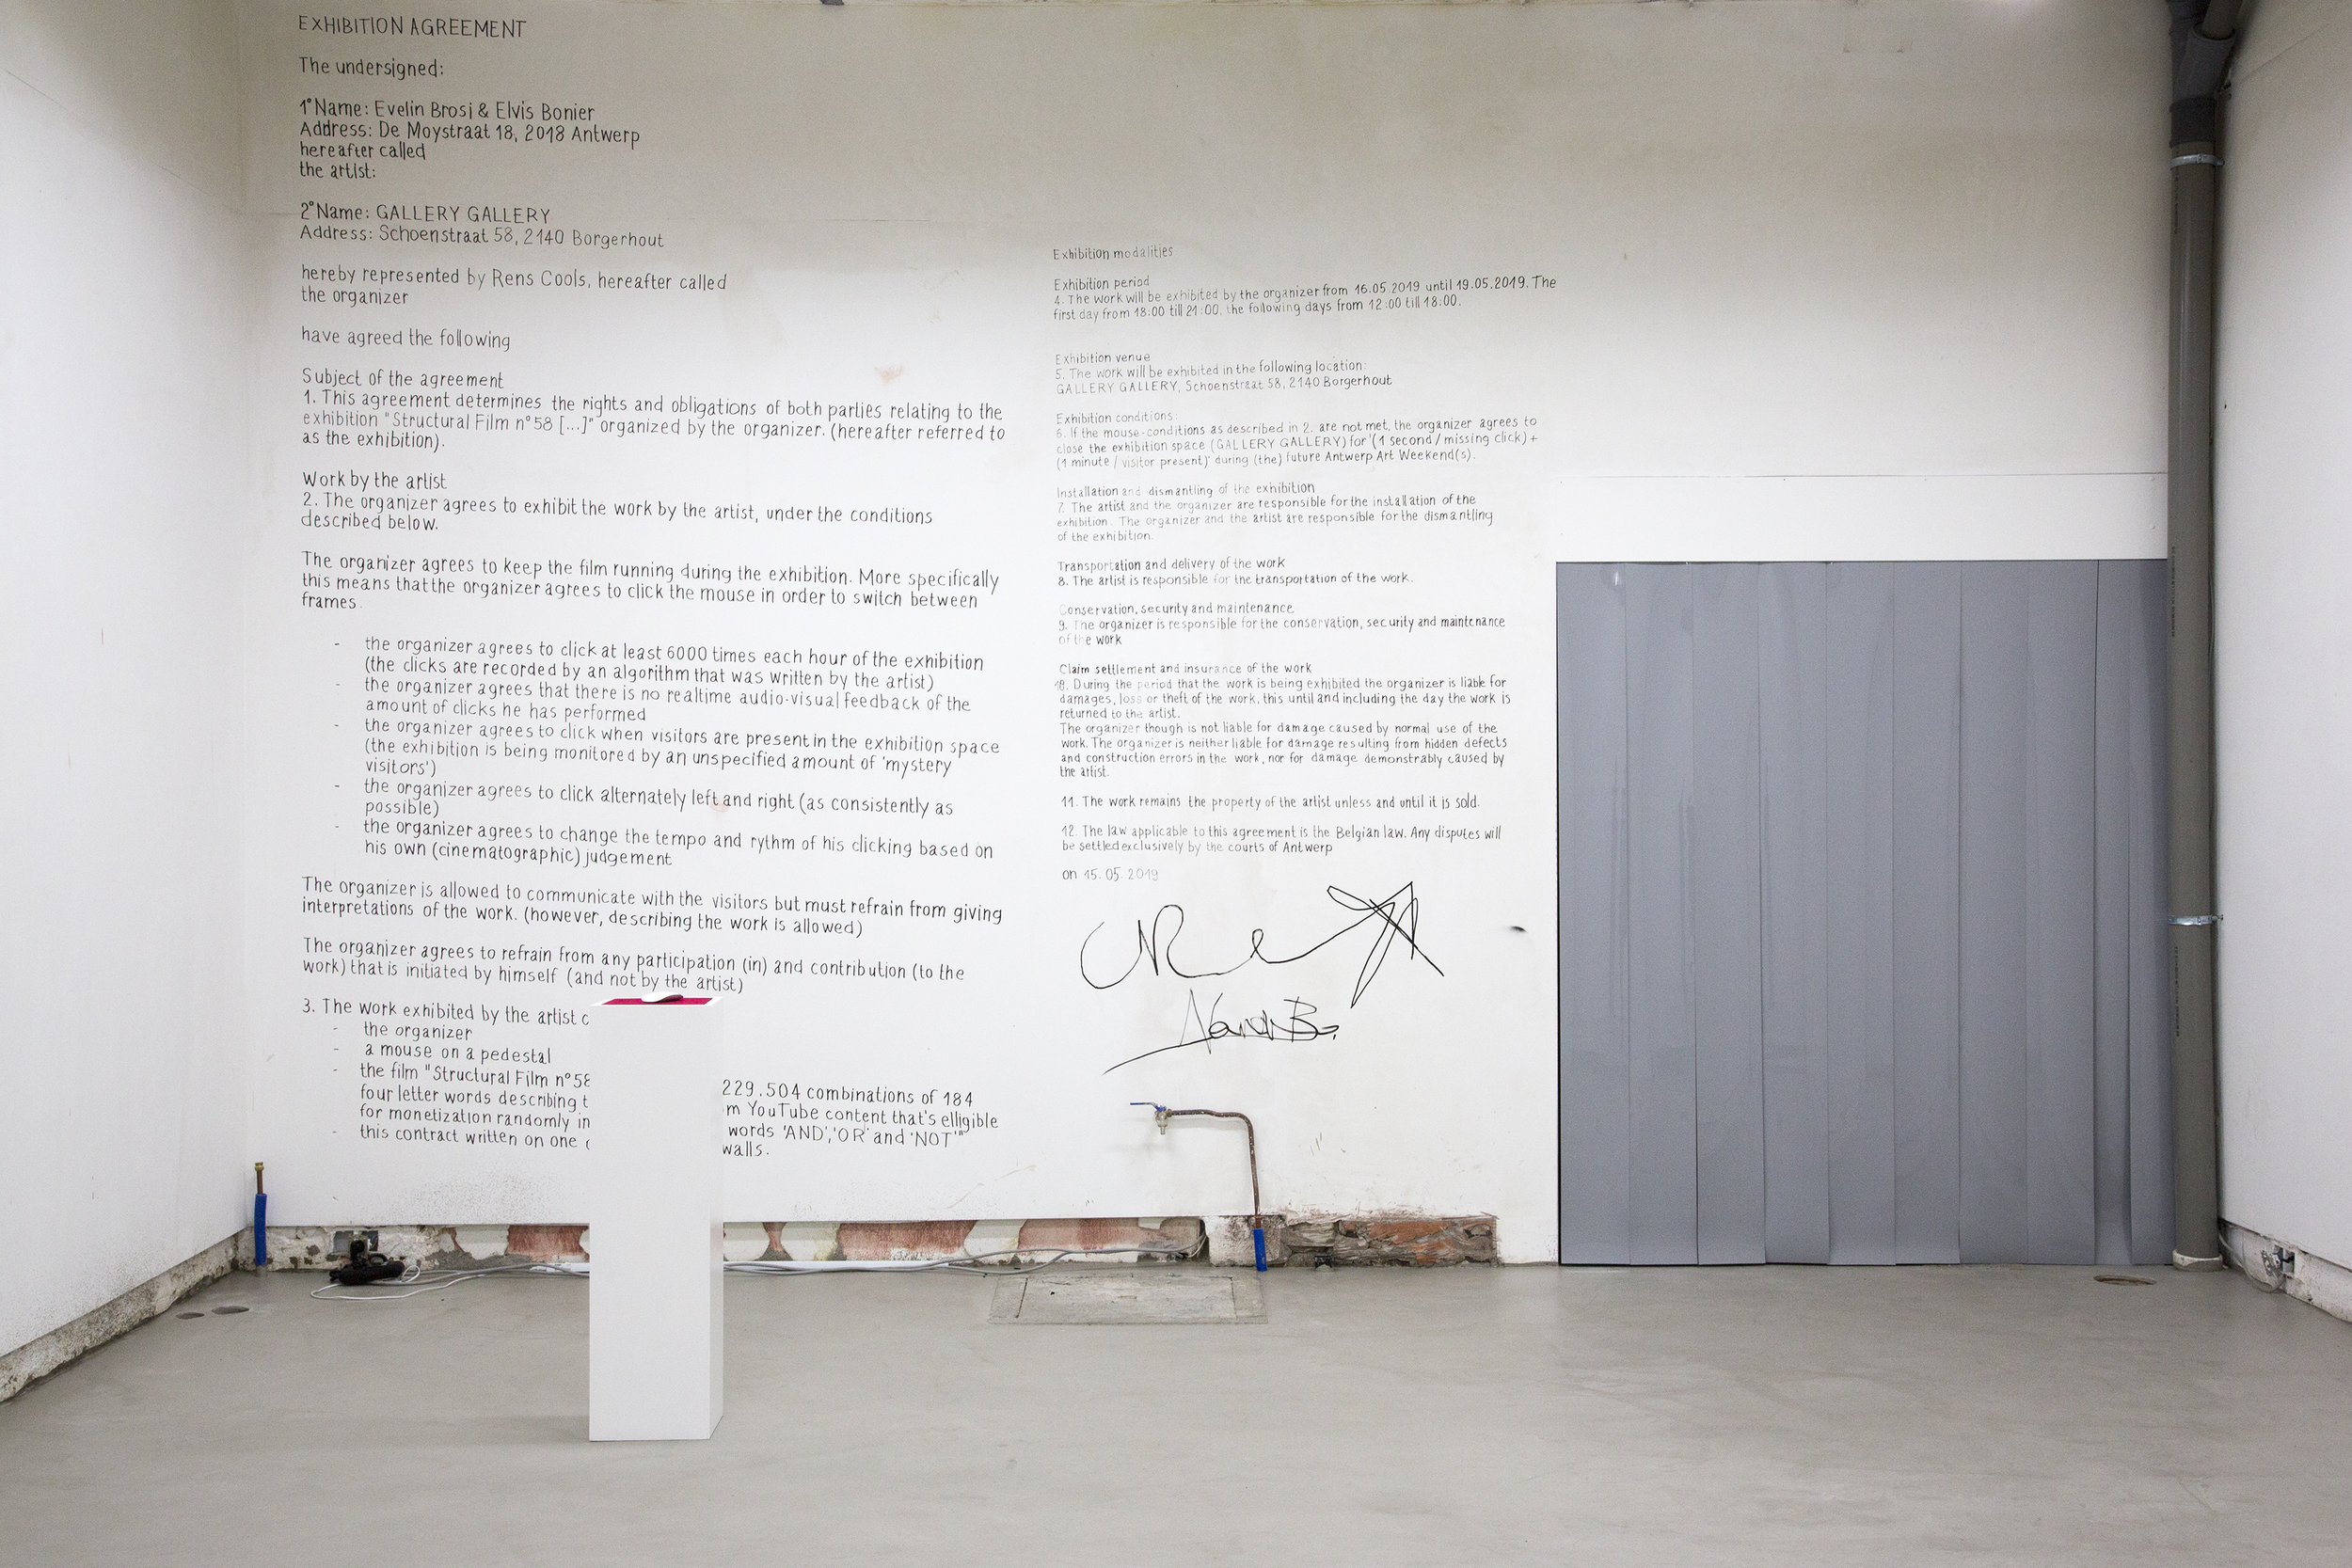 EXHIBITION AGREEMENT
The undersigned:
1° Name: Evelin Brosi & Elvis Bonier
Address: De Moystraat 18, 2018 Antwerp
hereafter called
the artist:
2° Name: GALLERY GALLERY
Address: Schoenstraat 58, 2140 Borgerhout
hereby represented by Rens Cools, hereafter called
the organizer
have agreed the following
Subject of the agreement
1. This agreement determines the rights and obligations of both parties relating to the
exhibition "Structural Film n°58 [...]" organized by the organizer. (hereafter referred to
as the exhibition).
Work by the artist
2. The organizer agrees to exhibit the work by the artist, under the conditions
described below.
The organizer agrees to keep the film running during the exhibition. More specifically
this means that the organizer agrees to click the mouse in order to switch between
frames.
- the organizer agrees to click at least 6000 times each hour of the exhibition
(the clicks are recorded by an algorithm that was written by the artist)
- the organizer agrees that there is no realtime audio-visual feedback of the
amount of clicks he has performed
- the organizer agrees to click when visitors are present in the exhibition space
(the exhibition is being monitored by an unspecified amount of 'mystery
visitors')
- the organizer agrees to click alternately left and right (as consistently as
possible)
- the organizer agrees to change the tempo and rythm of his clicking based on
his own (cinematographic) judgement
The organizer is allowed to communicate with the visitors but must refrain from giving
interpretations of the work. (however, describing the work is allowed)
The organizer agrees to refrain from any participation (in) and contribution (to the
work) that is initiated by himself (and not by the artist)
3. The work exhibited by the artist
- the organizer
- a mouse on a pedestal
- the film "Structural Film n°58 229.504 combinations of 184
four letter words describing YouTube content that's elligible
for monetization randomly words 'AND', 'OR' and 'NOT'"
- this contract written on one walls.
Exhibition modalities
Exhibition period
4. The work will be exhibited by the organizer from 16.05.2019 until 19.05.2019. The
first day from 18:00 till 21:00. the following days from 12:00 till 18:00.
Exhibition venue
5. The work will be exhibited in the following location:
GALLERY GALLERY, Schoenstraat 58, 2140 Borgerhout
Exhibition conditions:
6. If the mouse-conditions as described in 2. are not met, the organizer agrees to
close the exhibition space (GALLERY GALLERY) for '(1 second / missing click) +
(1 minute / visitor present)' during (the) future Antwerp Art Weekend(s).
Installation and dismantling of the exhibition
7. The artist and the organizer are responsible for the installation of the
exhibition. The organizer and the artist are responsible for the dismantling
of the exhibition.
Transportation and delivery of the work
8. The artist is responsible for the transportation of the work.
Conservation, security and maintenance
9. The organizer is responsible for the conservation, security and maintenance
of the work
Claim settlement and insurance of the work
10. During the period that the work is being exhibited the organizer is liable for
damages, loss or theft of the work, this until and including the day the work is
returned to the artist.
The organizer though is not liable for damage caused by normal use of the
work. The organizer is neither liable for damage resulting from hidden defects
and construction errors in the work, nor for damage demonstrably caused by
the artist.
11. The work remains the property of the artist unless and until it is sold.
12. The law applicable to this agreement is the Belgian law. Any disputes will
be settled exclusively by the courts of Antwerp
on 15.05.2019